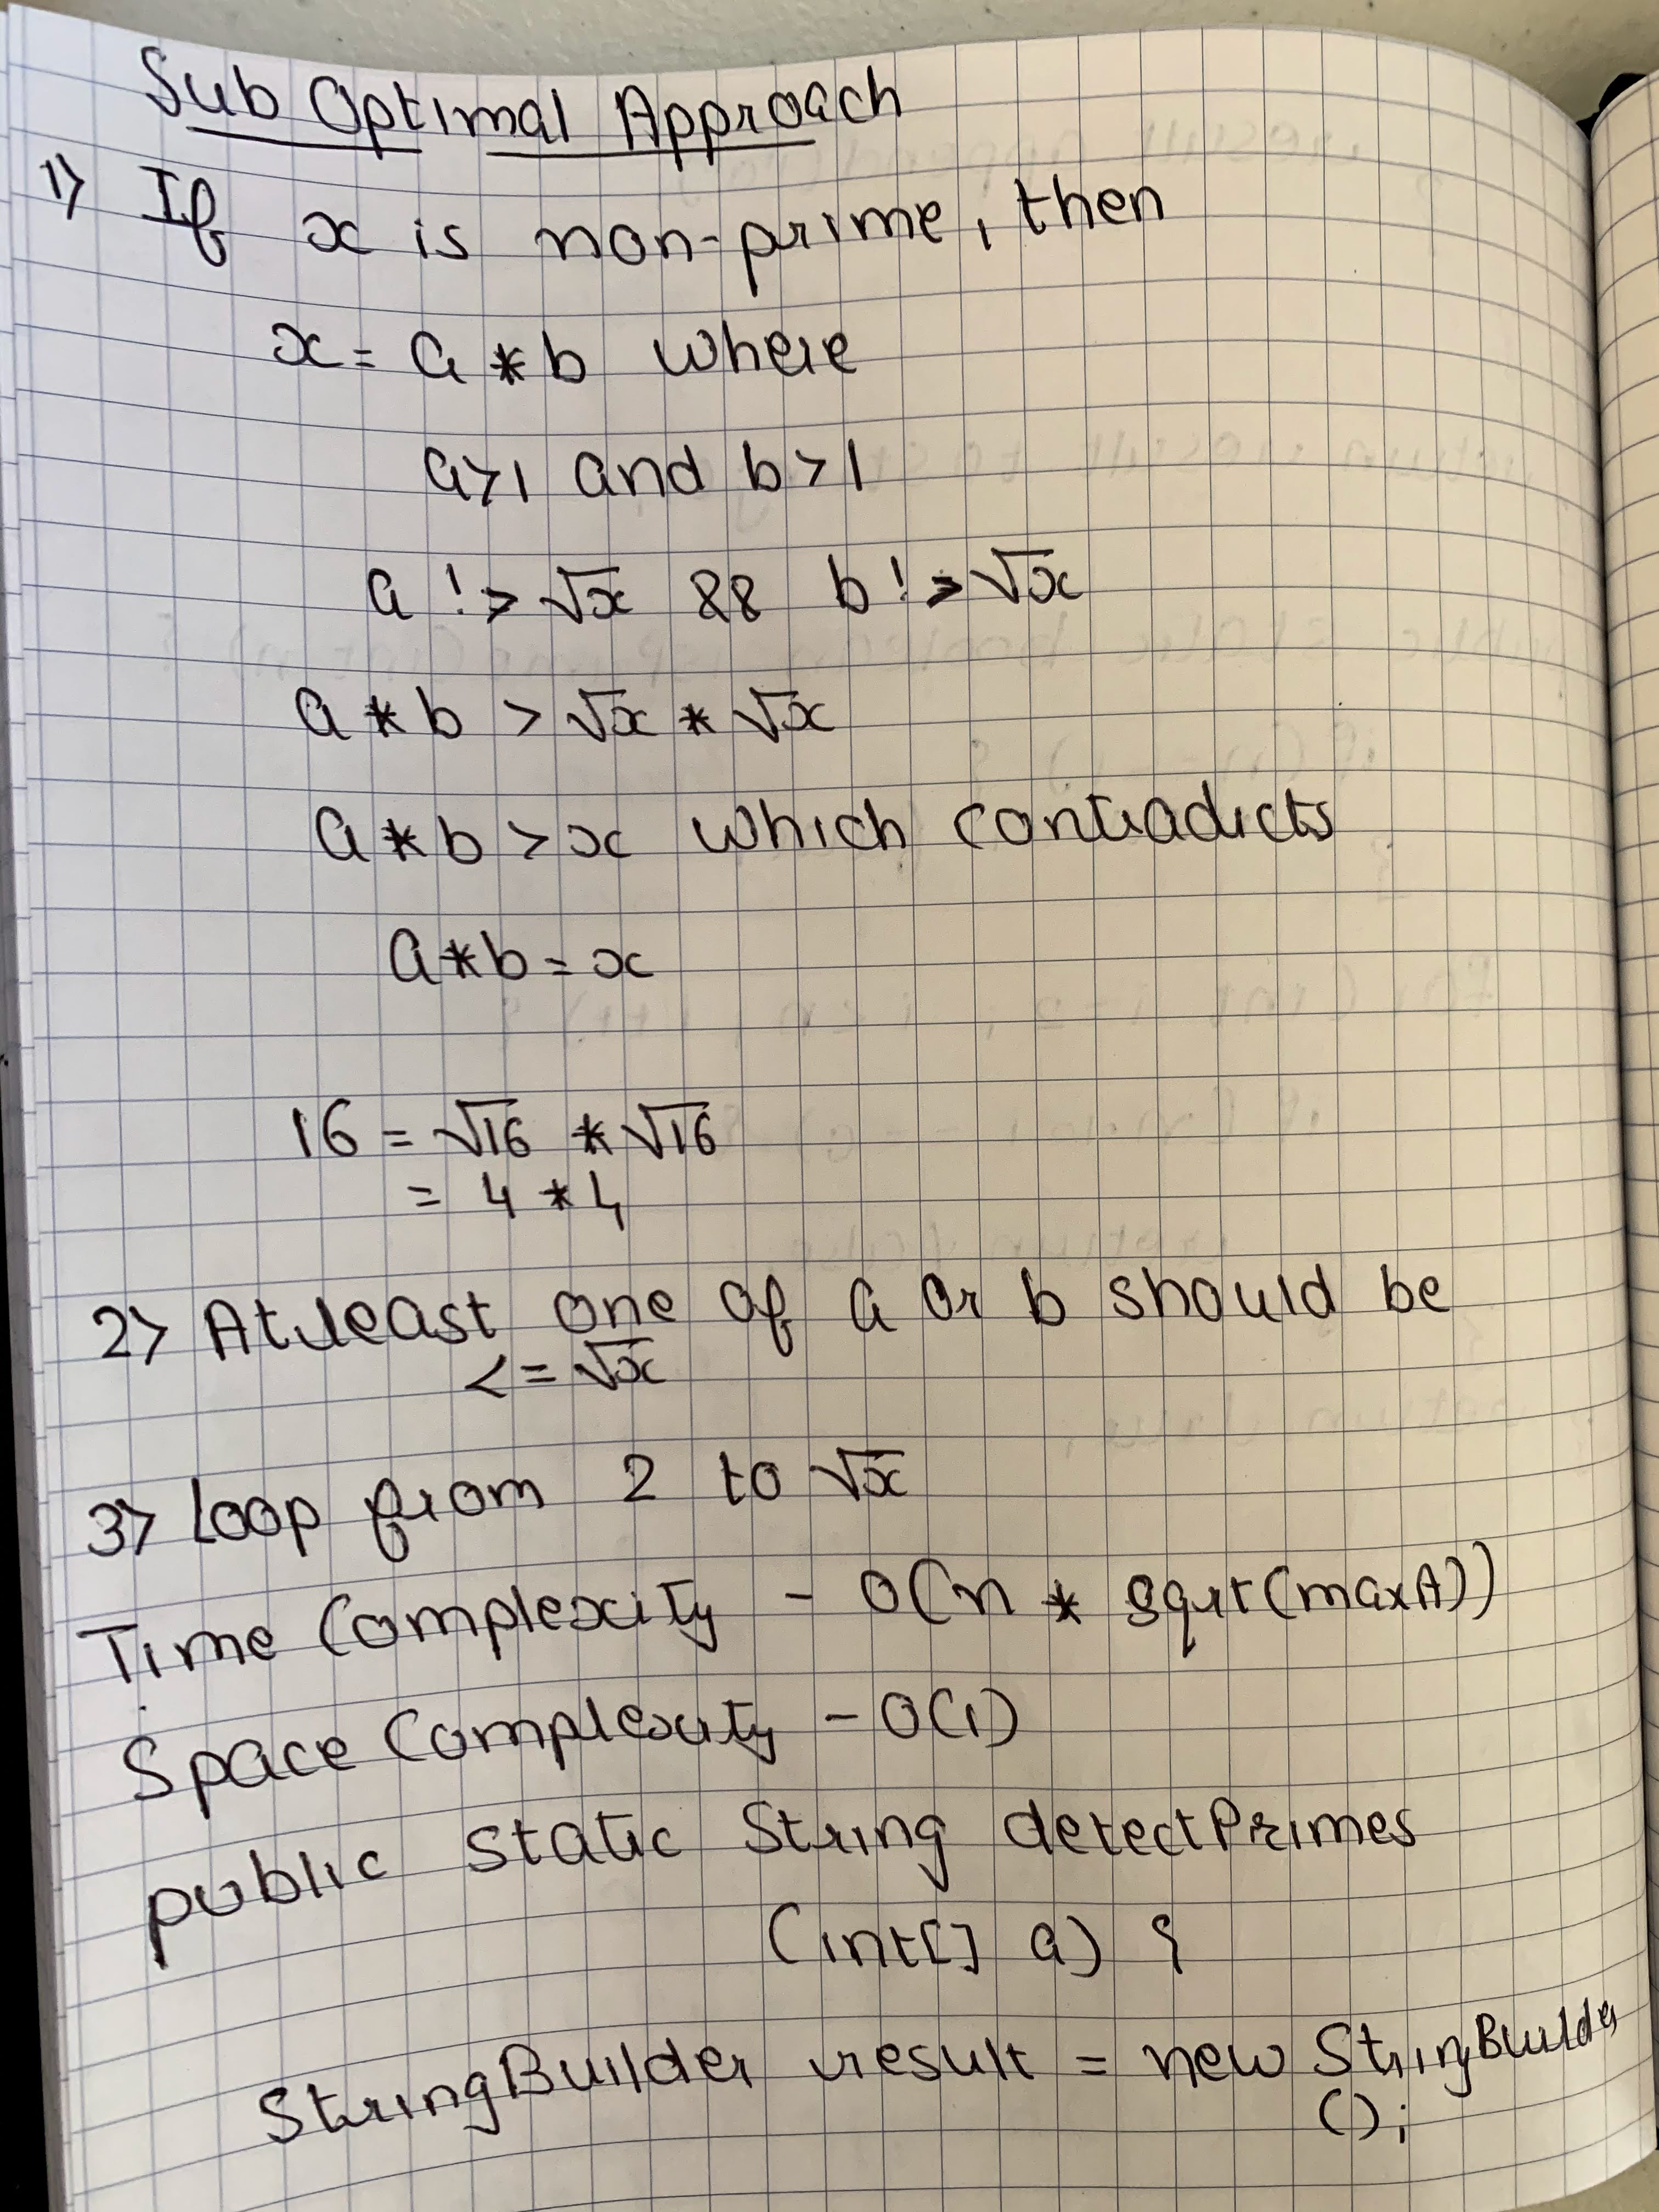 Sub Optimal Approach
1) If x is non-prime, then
x = a * b where
a>1 and b>1
a !> √x && b !> √x
a * b > √x * √x
a * b > x which contradicts
a * b = x
16 = √16 * √16
= 4 * 4
2) Atleast one of a or b should be
<= √x
3) Loop from 2 to √x
Time Complexity - O(n * sqrt(maxA))
Space Complexity - O(1)
public static String detectPrimes
(int[] a) {
StringBuilder result = new StringBuilder
();